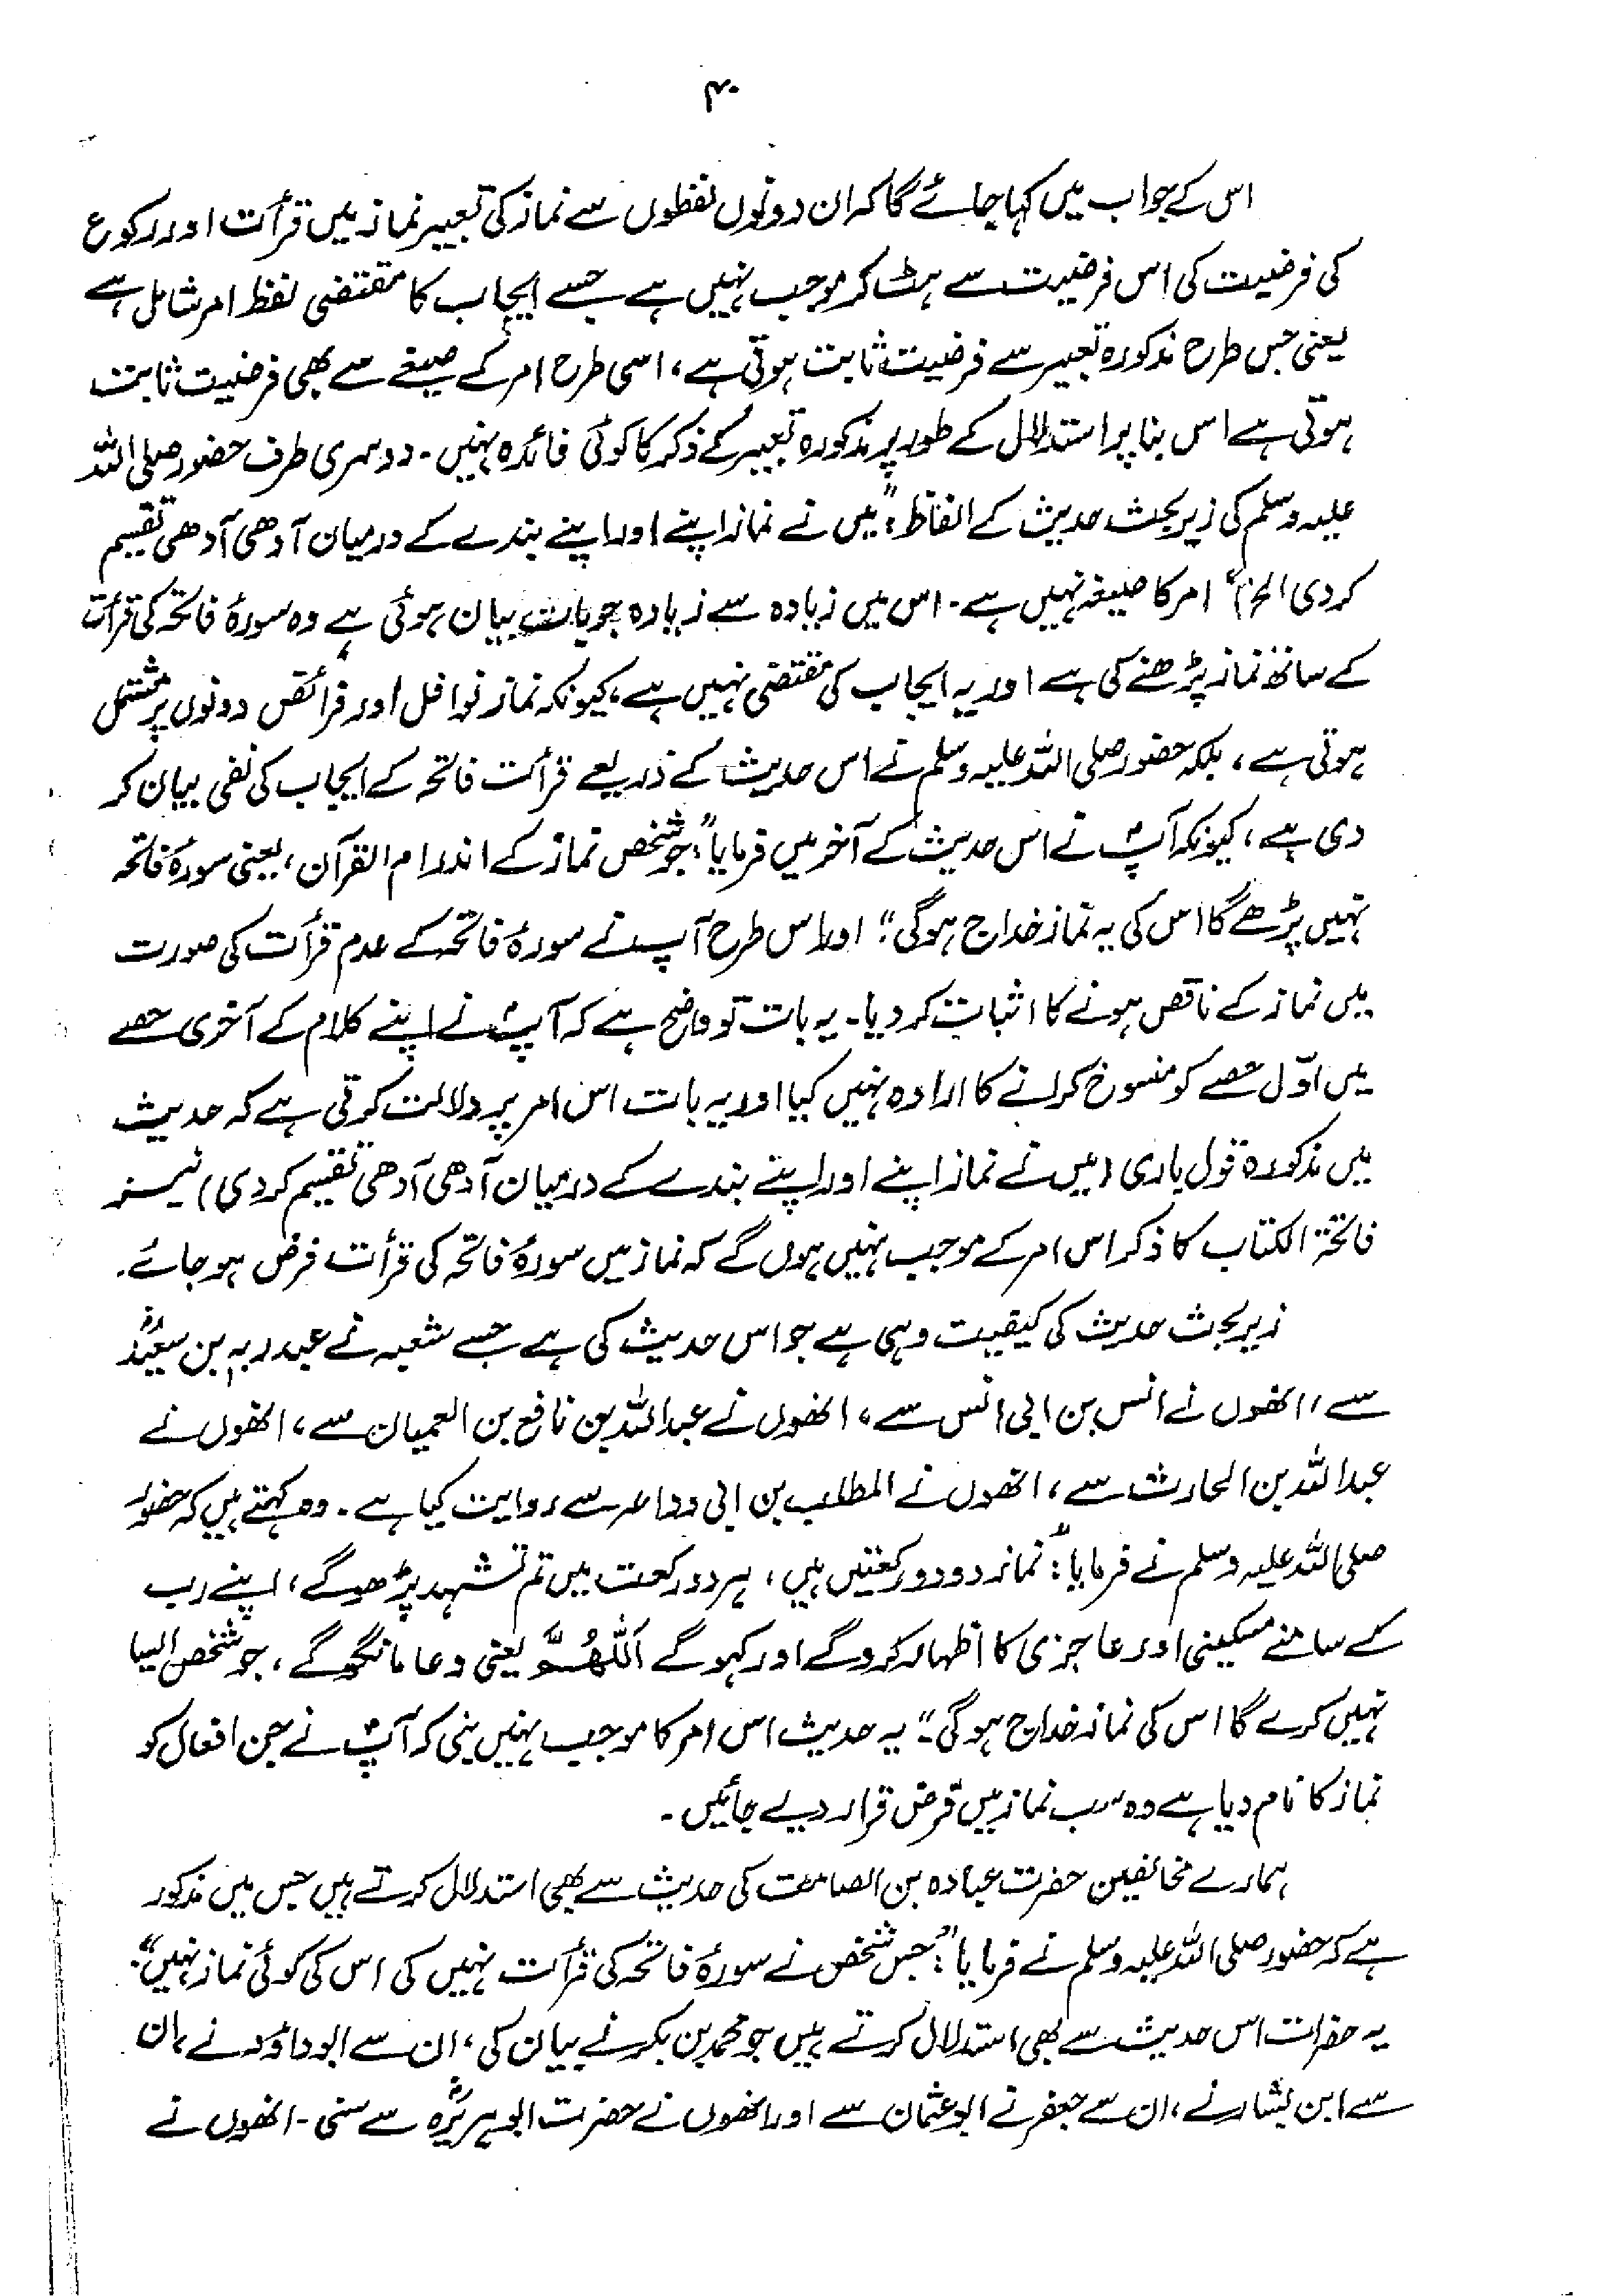 ۴۰
اس کے جواب میں کہا جائے گا کہ ان دونوں لفظوں سے نماز کی تعبیر نماز میں قرأت اور رکوع
کی فرضیت کی اس فرضیت سے ہٹ کر موجب نہیں ہے جسے ایجاب کا مقتضی لفظ امر شامل ہے
یعنی جس طرح مذکورہ تعبیر سے فرضیت ثابت ہوتی ہے، اسی طرح امر کے صیغے سے بھی فرضیت ثابت
ہوتی ہے اس بنا پر استدلال کے طور پر مذکورہ تعبیر کے ذکر کا کوئی فائدہ نہیں۔ دوسری طرف حضور صلی اللہ
علیہ وسلم کی زیر بحث حدیث کے الفاظ: "میں نے نماز اپنے اور اپنے بندے کے درمیان آدھی آدھی تقسیم
کر دی الخ" امر کا صیغہ نہیں ہے۔ اس میں زیادہ سے زیادہ جو بات بیان ہوئی ہے وہ سورۂ فاتحہ کی قرأت
کے ساتھ نماز پڑھنے کی ہے اور یہ ایجاب کی مقتضی نہیں ہے، کیونکہ نماز نوافل اور فرائض دونوں پر مشتمل
ہوتی ہے، بلکہ حضور صلی اللہ علیہ وسلم نے اس حدیث کے ذریعے قرأت فاتحہ کے ایجاب کی نفی بیان کر
دی ہے، کیونکہ آپؐ نے اس حدیث کے آخر میں فرمایا: "جو شخص نماز کے اندر ام القرآن، یعنی سورۂ فاتحہ
نہیں پڑھے گا اس کی یہ نماز خداج ہوگی" اور اس طرح آپ نے سورۂ فاتحہ کے عدم قرأت کی صورت
میں نماز کے ناقص ہونے کا اثبات کر دیا۔ یہ بات تو واضح ہے کہ آپؐ نے اپنے کلام کے آخری حصے
میں اوّل حصے کو منسوخ کرانے کا ارادہ نہیں کیا اور یہ بات اس امر پر دلالت کرتی ہے کہ حدیث
میں مذکورہ قول باری (میں نے نماز اپنے اور اپنے بندے کے درمیان آدھی آدھی تقسیم کر دی) نیز
فاتحۃ الکتاب کا ذکر اس امر کے موجب نہیں ہوں گے کہ نماز میں سورۂ فاتحہ کی قرأت فرض ہو جائے۔
زیر بحث حدیث کی کیفیت وہی ہے جو اس حدیث کی ہے جسے شعبہ نے عبد ربہ بن سعیدؓ
سے، انھوں نے انس بن ابی انس سے، انھوں نے عبداللہ بن نافع بن العمیان سے، انھوں نے
عبداللہ بن الحارث سے، انھوں نے المطلب بن ابی وداعہ سے روایت کیا ہے۔ وہ کہتے ہیں کہ حضور
صلی اللہ علیہ وسلم نے فرمایا: "نماز دو دو رکعتیں ہیں، ہر دو رکعت میں تم تشہد پڑھو گے، اپنے رب
کے سامنے مسکینی اور عاجزی کا اظہار کرو گے اور کہو گے اَللّٰھُمَّ یعنی دعا مانگو گے، جو شخص ایسا
نہیں کرے گا اس کی نماز خداج ہوگی" یہ حدیث اس امر کا موجب نہیں بنی کہ آپؐ نے جن افعال کو
نماز کا نام دیا ہے وہ سب نماز میں فرض قرار دیے جائیں۔
ہمارے مخالفین حضرت عبادہ بن الصامت کی حدیث سے بھی استدلال کرتے ہیں جس میں مذکور
ہے کہ حضور صلی اللہ علیہ وسلم نے فرمایا: "جس شخص نے سورۂ فاتحہ کی قرأت نہیں کی اس کی کوئی نماز نہیں"۔
یہ حضرات اس حدیث سے بھی استدلال کرتے ہیں جو محمد بن بکر نے بیان کی، ان سے ابو داؤد نے، ان
سے ابن بشار نے، ان سے جعفر نے ابو عثمان سے اور انھوں نے حضرت ابوہریرہؓ سے سنی۔ انھوں نے